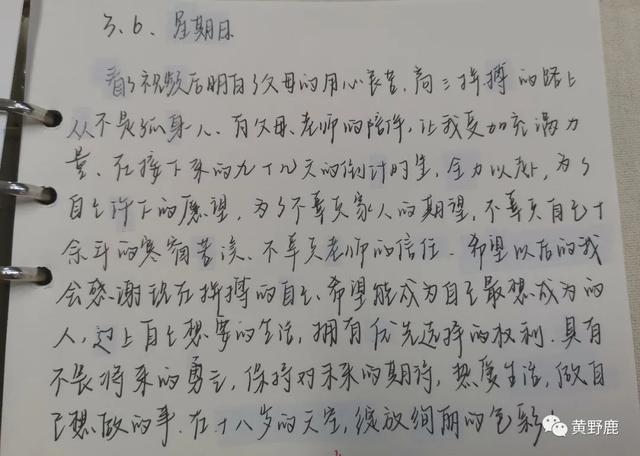 3.6. 星期日
看了视频后明白了父母的用心良苦,高三拼搏的路上
从不是孤身一人、有父母、老师的陪伴,让我更加充满力
量、在接下来的九十几天的倒计时里,全力以赴,为了
自己许下的愿望,为了不辜负家人的期望,不辜负自己十
余年的寒窗苦读、不辜负老师的信任.希望以后的我
会感谢现在拼搏的自己、希望能成为自己最想成为的
人,过上自己想要的生活,拥有优先选择的权利.具有
不畏将来的勇气,保持对未来的期待,热爱生活,做自
己想做的事.在十八岁的天空,绽放绚丽的色彩!
黄野鹿